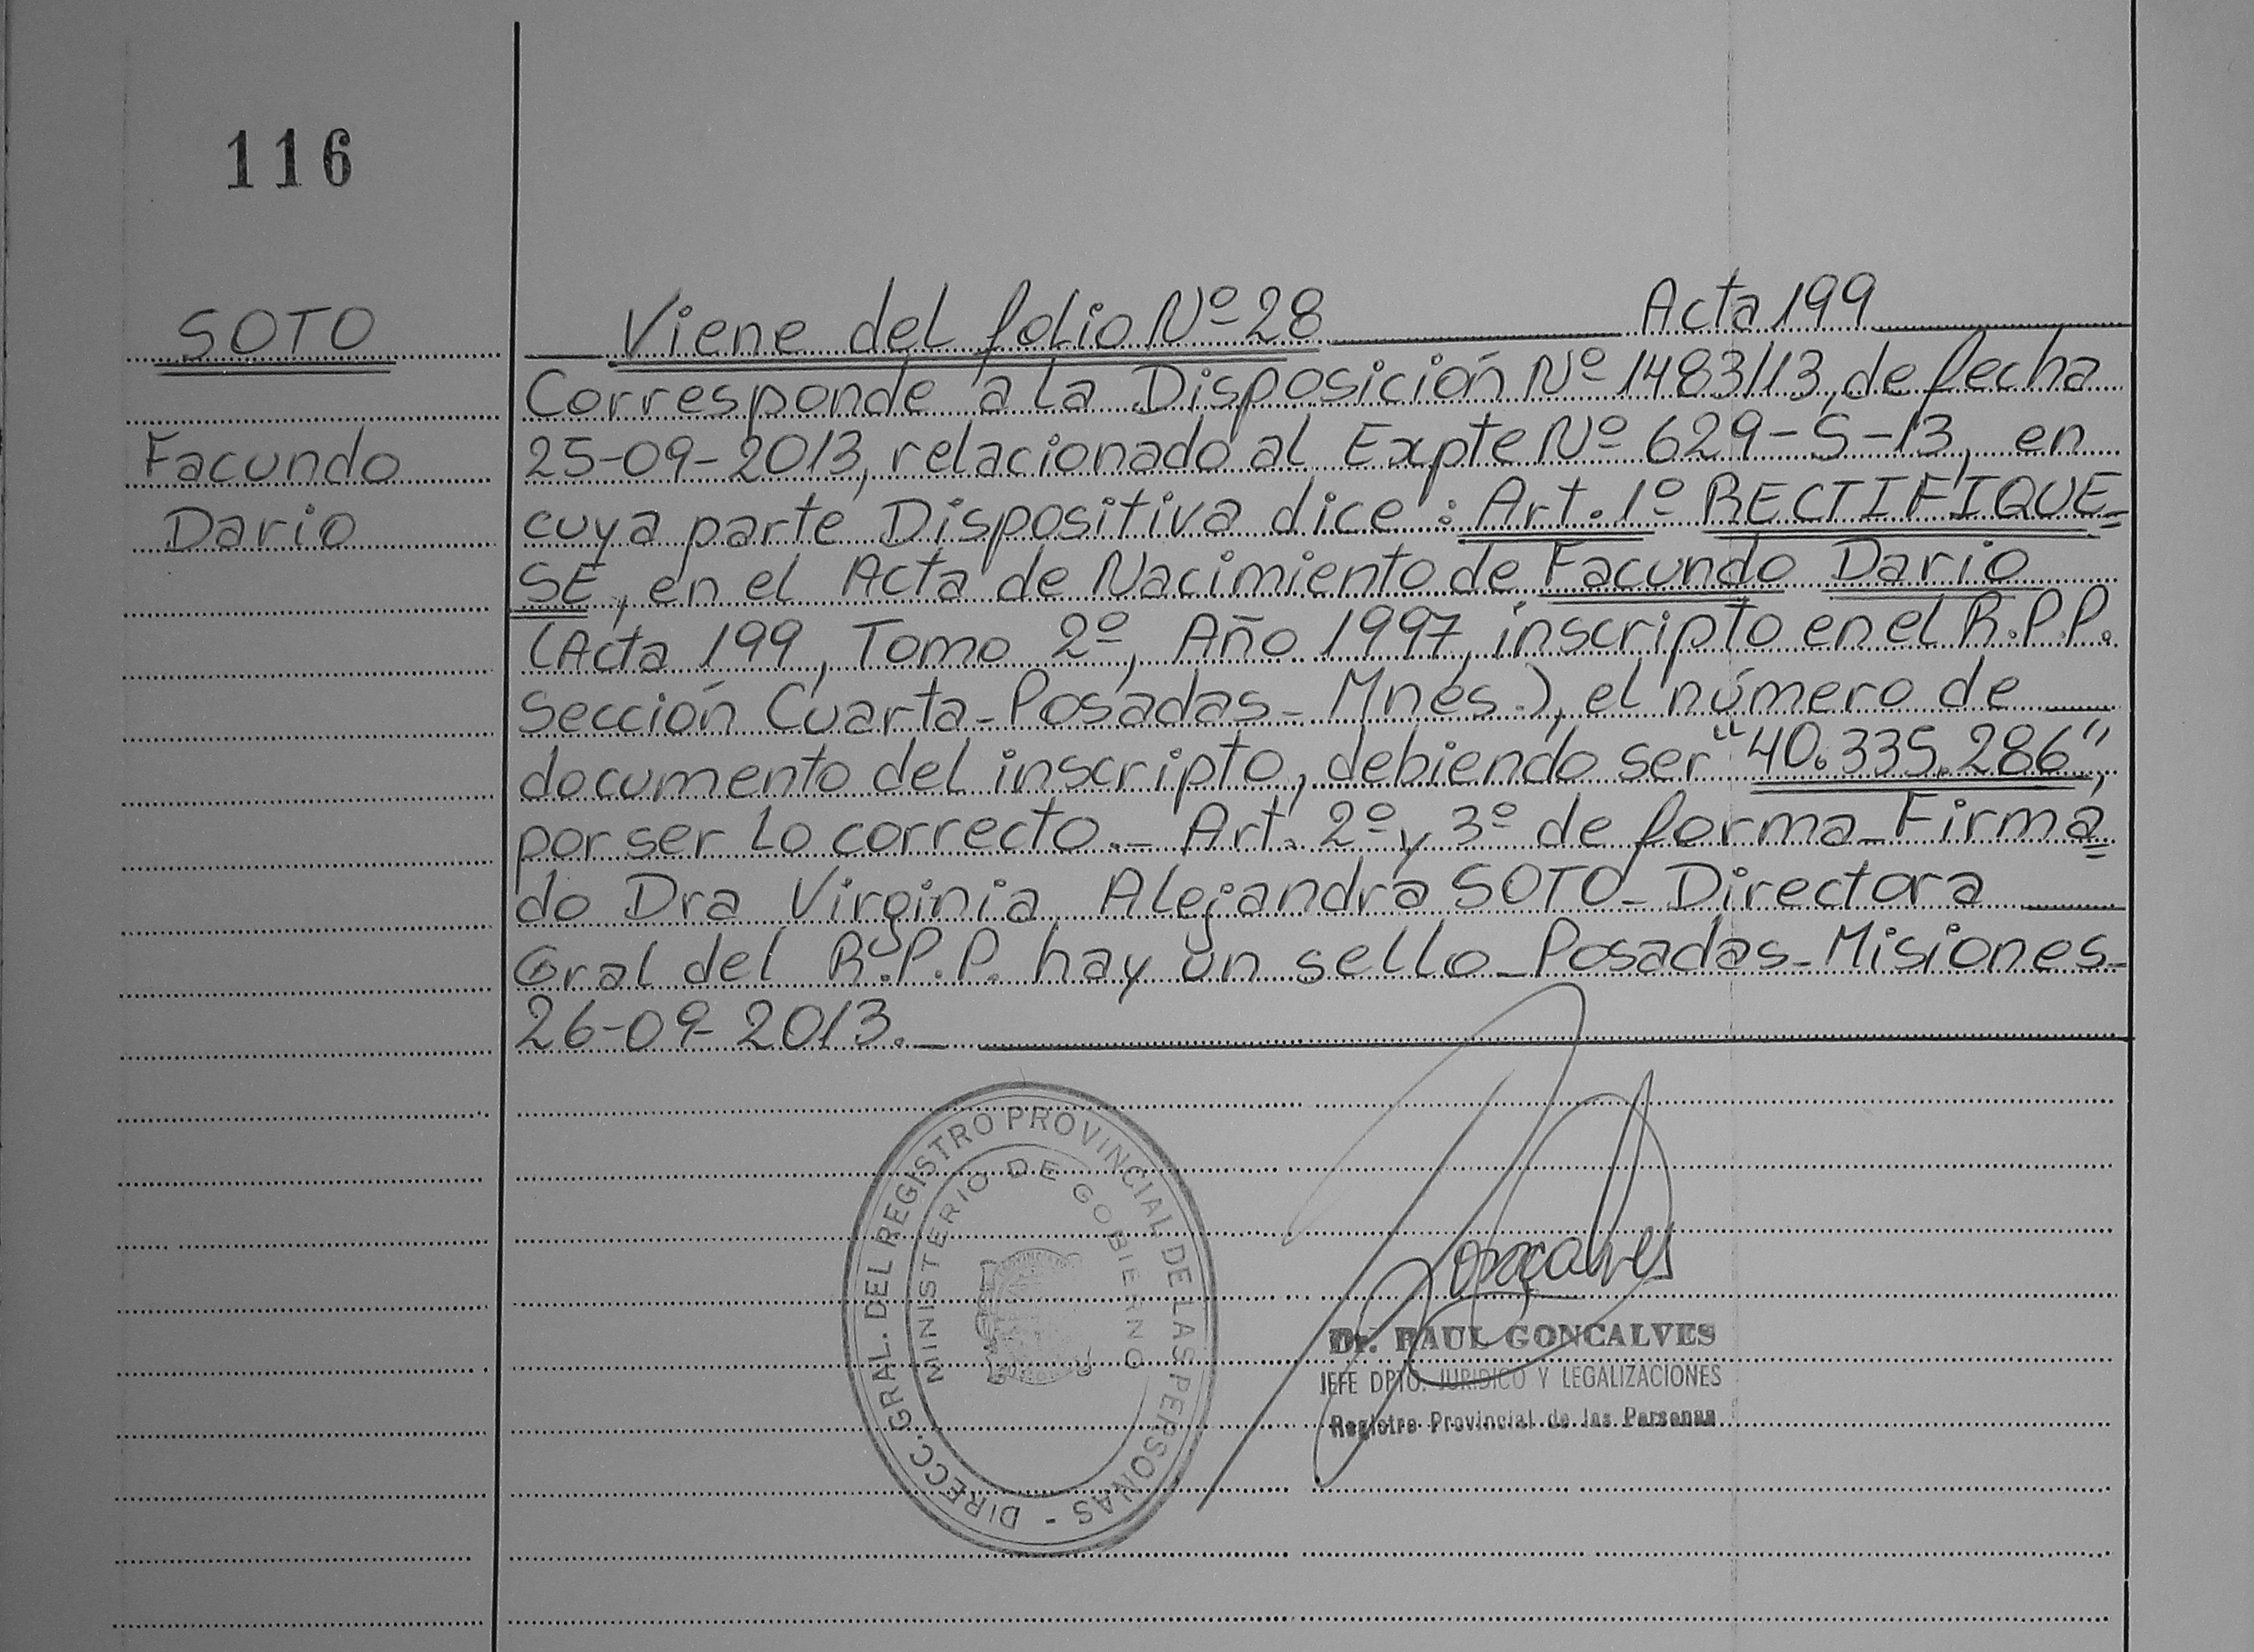 116
SOTO
Facundo
Dario
Viene del folio Nº 28 Acta 199
Corresponde a la Disposición Nº 1483/13, de fecha
25-09-2013, relacionado al Expte Nº 629-S-13, en
cuya parte Dispositiva dice: Art. 1º RECTIFIQUE=
SE, en el Acta de Nacimiento de Facundo Dario
(Acta 199, Tomo 2º, Año 1997, inscripto en el R.P.P.
Sección Cuarta-Posadas-Mnes.), el número de
documento del inscripto, debiendo ser "40.335.286",
por ser lo correcto.- Art. 2º y 3º de forma-Firma=
do Dra Virginia Alejandra SOTO-Directora
Gral del R.P.P. hay un sello-Posadas-Misiones-
26-09-2013.-
DIRECC. GRAL. DEL REGISTRO PROVINCIAL DE LAS PERSONAS -
MINISTERIO DE GOBIERNO
Gonçalves
Dr. RAUL GONCALVES
JEFE DPTO. JURIDICO Y LEGALIZACIONES
Registro Provincial de las Personas